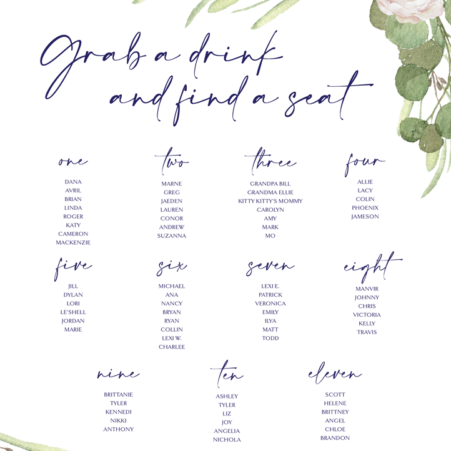 Grab a drink
and find a seat
one
DANA
AVRIL
BRIAN
LINDA
ROGER
KATY
CAMERON
MACKENZIE
two
MARNE
GREG
JAEDEN
LAUREN
CONOR
ANDREW
SUZANNA
three
GRANDPA BILL
GRANDMA ELLIE
KITTY KITTY'S MOMMY
CAROLYN
AMY
MARK
MO
four
ALLIE
LACY
COLIN
PHOENIX
JAMESON
five
JILL
DYLAN
LORI
LE'SHELL
JORDAN
MARIE
six
MICHAEL
ANA
NANCY
BRYAN
RYAN
COLLIN
LEXI W.
CHARLEE
seven
LEXI E.
PATRICK
VERONICA
EMILY
ILYA
MATT
TODD
eight
MANVIR
JOHNNY
CHRIS
VICTORIA
KELLY
TRAVIS
nine
BRITTANIE
TYLER
KENNEDI
NIKKI
ANTHONY
ten
ASHLEY
TYLER
LIZ
JOY
ANGELIA
NICHOLA
eleven
SCOTT
HELENE
BRITTNEY
ANGEL
CHLOE
BRANDON